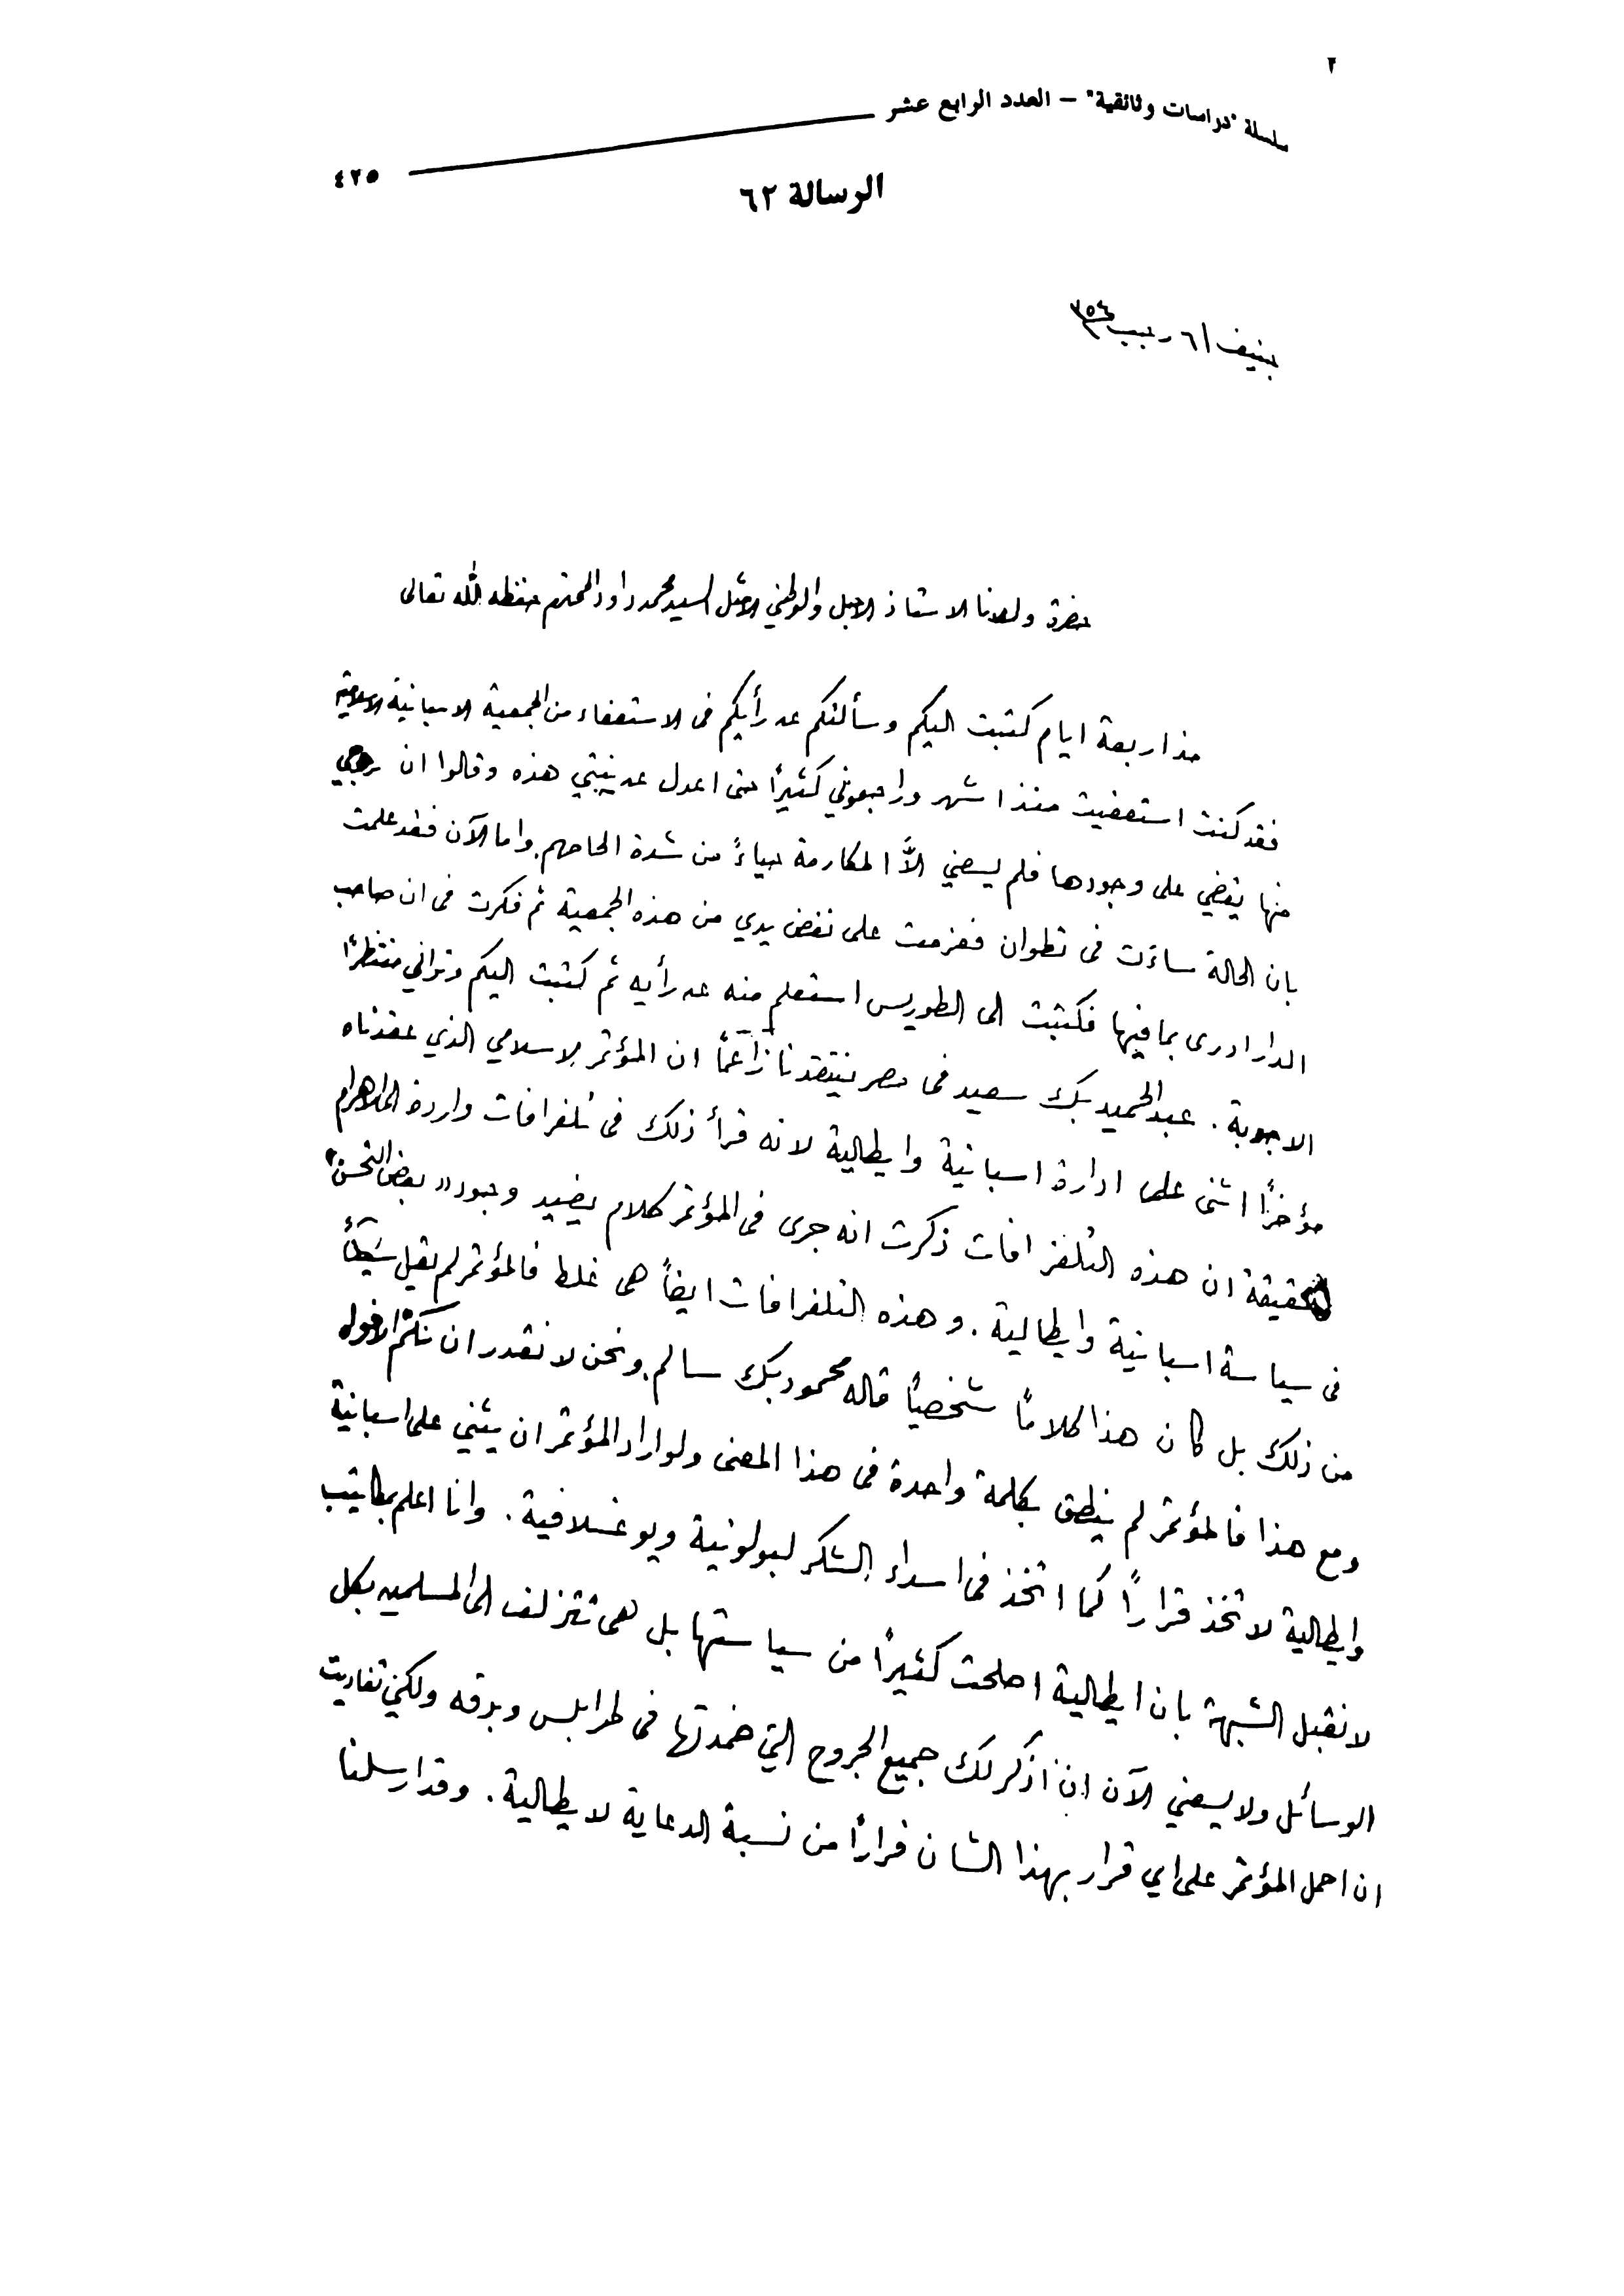 ٢
سلسلة "دراسات وثائقية" – العدد الرابع عشر
٤٢٥
الرسالة ٦٢
جنيف ٦ رجب ٣٥٤
حضرة ولدنا الاستاذ الاجل والوطني الامثل السيد محمد داود المحترم حفظه الله تعالى
منذ اربعة ايام كتبت اليكم وسألتكم عن رأيكم فى الاستعفاء من الجمعية الاسبانية الاسلامية
فقد كنت استعفيت منذ اشهر وراجعوني كثيرًا حتى اعدل عن نيتي هذه وقالوا ان خروجي
منها يقضي على وجودها فلم يسعني الاَّ المكارمة حياءً من شدة الحاحهم. واما الآن فقد علمت
بان الحالة ساءَت فى تطوان فعزمت على نفض يدي من هذه الجمعية ثم فكرت فى ان صاحب
الدار ادرى بما فيها فكتبت الى الطوريس استعلم منه عن رأيه ثم كتبت اليكم وتراني منتظرًا
الاجوبة. عبد الحميد بك سعيد فى مصر ينتقدنا زاعمًا ان المؤتمر الاسلامي الذي عقدناه
مؤخرًا اثنى على ادارة اسبانية وايطالية لانه قرأ ذلك فى تلغرافات واردة الى الاهرام
الحقيقة ان هذه التلغرافات ذكرت انه جرى فى المؤتمر كلام يفيد وجود « بعض التحسن »
فى سياسة اسبانية وايطالية. وهذه التلغرافات ايضًا هى غلط فالمؤتمر لم يقل شيئًا
من ذلك بل كان هذا كلامًا شخصيًا قاله محمود بك سالم. ونحن لا نقدر ان نكمّ الافواه
ومع هذا فالمؤتمر لم ينطق بكلمة واحدة فى هذا المعنى ولو اراد المؤتمر ان يثني على اسبانية
وايطالية لاتخذ قرارًا كما اتخذ فى اسداء الشكر لبولونية ويوغسلافية. وانا اعلم بمكاتيب
لا تقبل الشبهة بان ايطالية اصلحت كثيرًا من سياستها بل هى تتزلف الى المسلمين بكل
الوسائل ولا يسعني الآن ان اذكر لك جميع الجروح التي ضمدتها فى طرابلس وبرقه ولكني تفاديت
ان احمل المؤتمر على اي قرار بهذا الشان فرارًا من نسبة الدعاية لايطالية. وقد ارسلنا